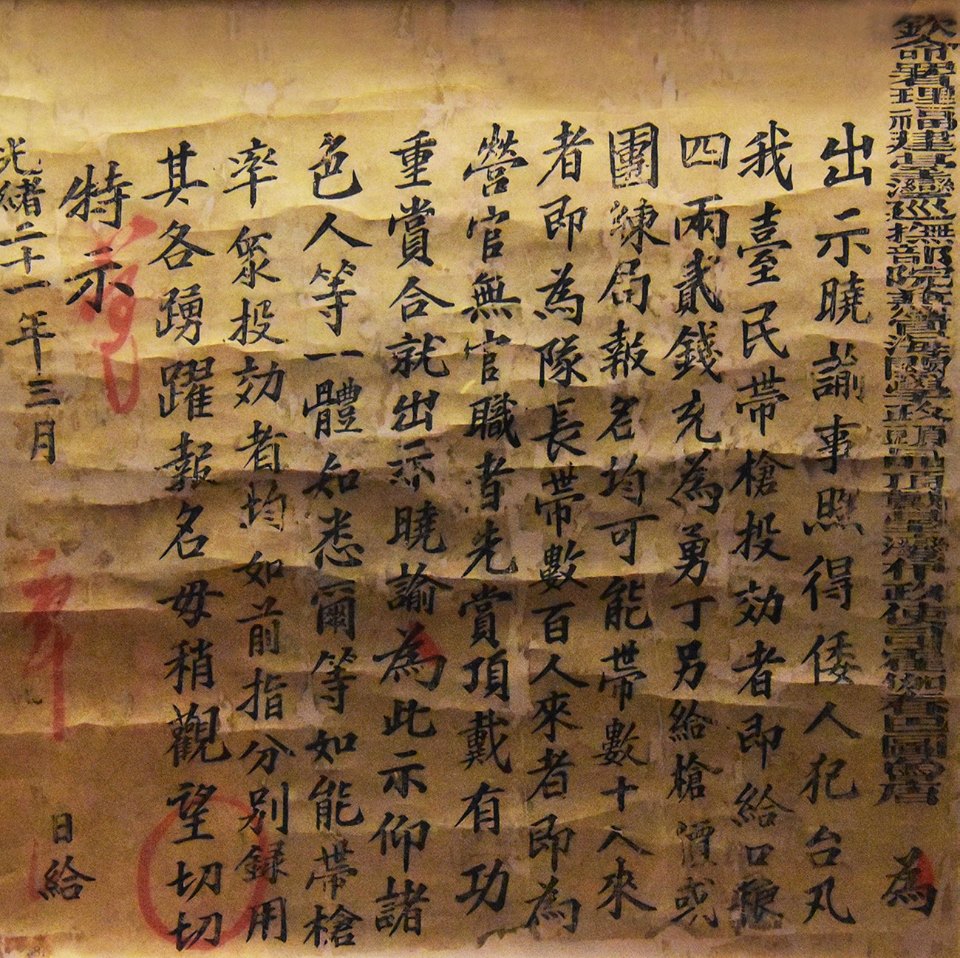 欽命署理福建臺灣巡撫部院兼管海關學政頭品頂戴臺灣布政使司霍伽春巴圖魯唐 為
出示曉諭事照得倭人犯台凡
我臺民帶槍投効者即給口糧
四兩貳錢充為勇丁另給槍價或
團練局報名均可能帶數十人來
者即為隊長帶數百人來者即為
營官無官職者先賞頂戴有功
重賞合就出示曉諭為此示仰諸
色人等一體知悉爾等如能帶槍
率眾投効者均如前指分別錄用
其各踴躍報名毋稍觀望切切
特示
光緒二十一年三月 日給